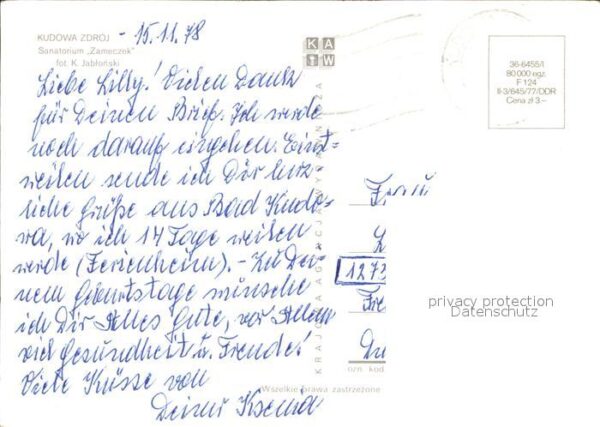 KUDOWA ZDRÓJ - 15.11.78
Sanatorium „Zameczek"
fot. K. Jabłoński
KAW
36-6455/I
80 000 egz.
F 124
II-3/645/77/DDR
Cena zł 3.–
Liebe Lilly! Vielen Dank
für Deinen Brief. Ich werde
noch darauf eingehen. Einst=
weilen sende ich Dir herz
liche Grüße aus Bad Kudo-
wa, wo ich 14 Tage weilen
werde (Ferienheim). - Zu Dei-
nem Geburtstage wünsche
ich Dir Alles Gute, vor Allem
viel Gesundheit u. Freude!
Viele Küsse von
Deiner Ksenia
KRAJOWA AGENCJA WYDAWNICZA
Frau
127
privacy protection
Datenschutz
ozn. kod
(Wszelkie prawa zastrzeżone